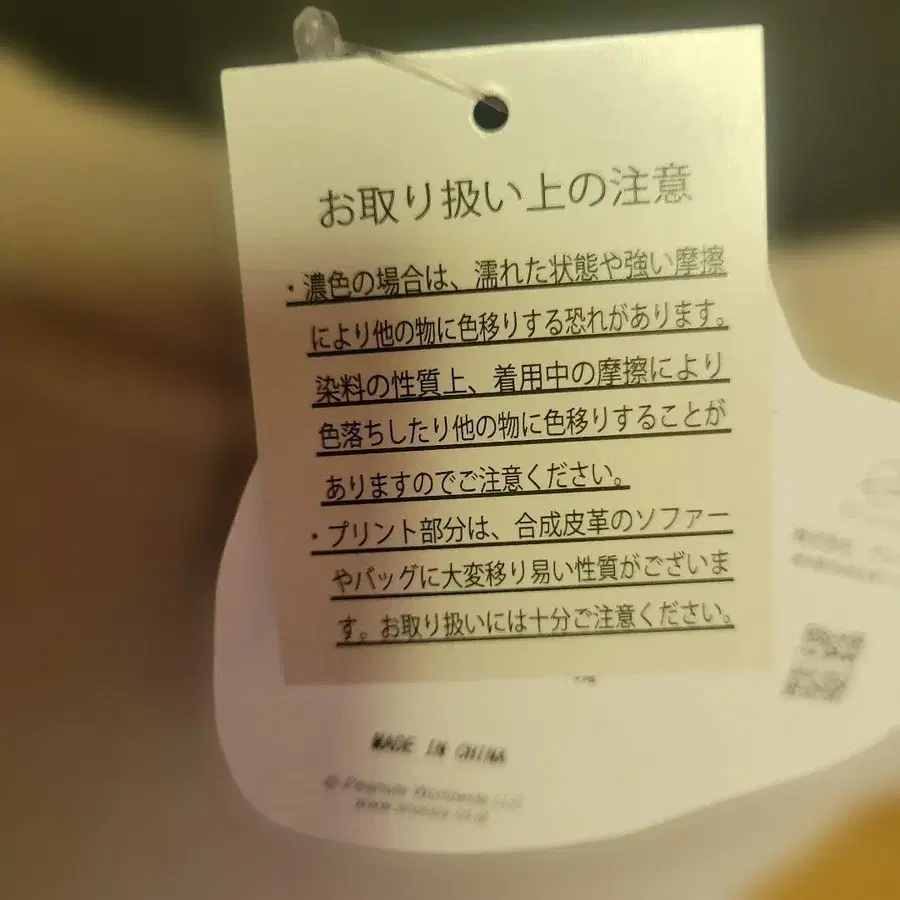 お取り扱い上の注意
・濃色の場合は、濡れた状態や強い摩擦
により他の物に色移りする恐れがあります。
染料の性質上、着用中の摩擦により
色落ちしたり他の物に色移りすることが
ありますのでご注意ください。
・プリント部分は、合成皮革のソファー
やバッグに大変移り易い性質がございま
す。お取り扱いには十分ご注意ください。
MADE IN CHINA
© Peanuts Worldwide LLC